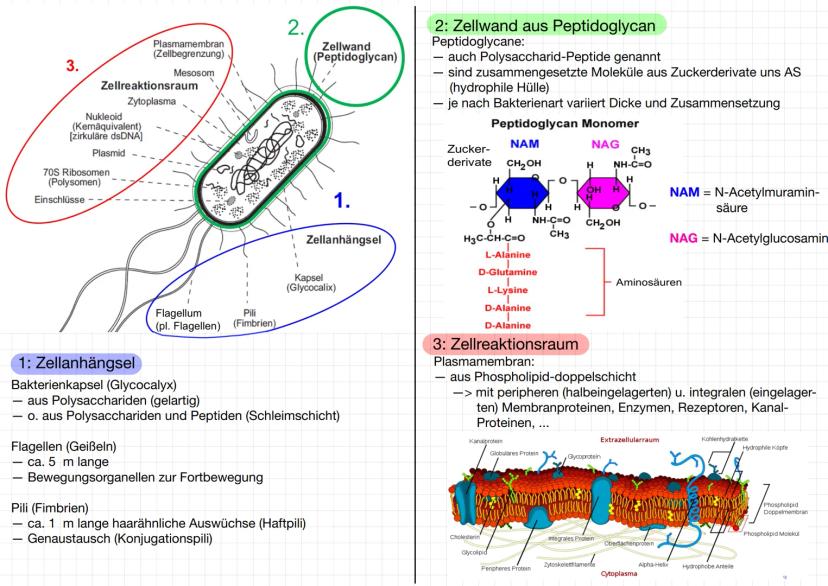 3.
Plasmamembran
(Zellbegrenzung)
Mesosom
Zellreaktionsraum
Zytoplasma
Nukleoid
(Kernäquivalent)
[zirkuläre dsDNA]
Plasmid
70S Ribosomen
(Polysomen)
Einschlüsse
2.
Zellwand
(Peptidoglycan)
1.
Zellanhängsel
Kapsel
(Glycocalix)
Flagellum
(pl. Flagellen)
Pili
(Fimbrien)
1: Zellanhängsel
Bakterienkapsel (Glycocalyx)
— aus Polysacchariden (gelartig)
— o. aus Polysacchariden und Peptiden (Schleimschicht)
Flagellen (Geißeln)
— ca. 5 m lange
— Bewegungsorganellen zur Fortbewegung
Pili (Fimbrien)
— ca. 1 m lange haarähnliche Auswüchse (Haftpili)
— Genaustausch (Konjugationspili)
2: Zellwand aus Peptidoglycan
Peptidoglycane:
— auch Polysaccharid-Peptide genannt
— sind zusammengesetzte Moleküle aus Zuckerderivate uns AS
(hydrophile Hülle)
— je nach Bakterienart variiert Dicke und Zusammensetzung
Peptidoglycan Monomer
Zucker-
derivate
NAM
NAG
CH₂OH
H
H
H
H
H
O
O
O
NH-C=O
CH₃
H₃C-CH-C=O
CH₃
NH-C=O
H
H
OH
H
H
O
H
CH₂OH
O
NAM = N-Acetylmuramin-
säure
NAG = N-Acetylglucosamin
L-Alanine
D-Glutamine
L-Lysine
D-Alanine
D-Alanine
Aminosäuren
3: Zellreaktionsraum
Plasmamembran:
— aus Phospholipid-doppelschicht
—> mit peripheren (halbeingelagerten) u. integralen (eingelager-
ten) Membranproteinen, Enzymen, Rezeptoren, Kanal-
Proteinen, ...
Kanalprotein
Globuläres Protein
Glycoprotein
Extrazellularraum
Kohlenhydratkette
Hydrophile Köpfe
Phospholipid
Doppelmembran
Phospholipid Molekül
Cholesterin
Glycolipid
Peripheres Protein
Integrales Protein
Zytoskelettfilamente
Oberflächenprotein
Cytoplasma
Alpha-Helix
Hydrophobe Anteile